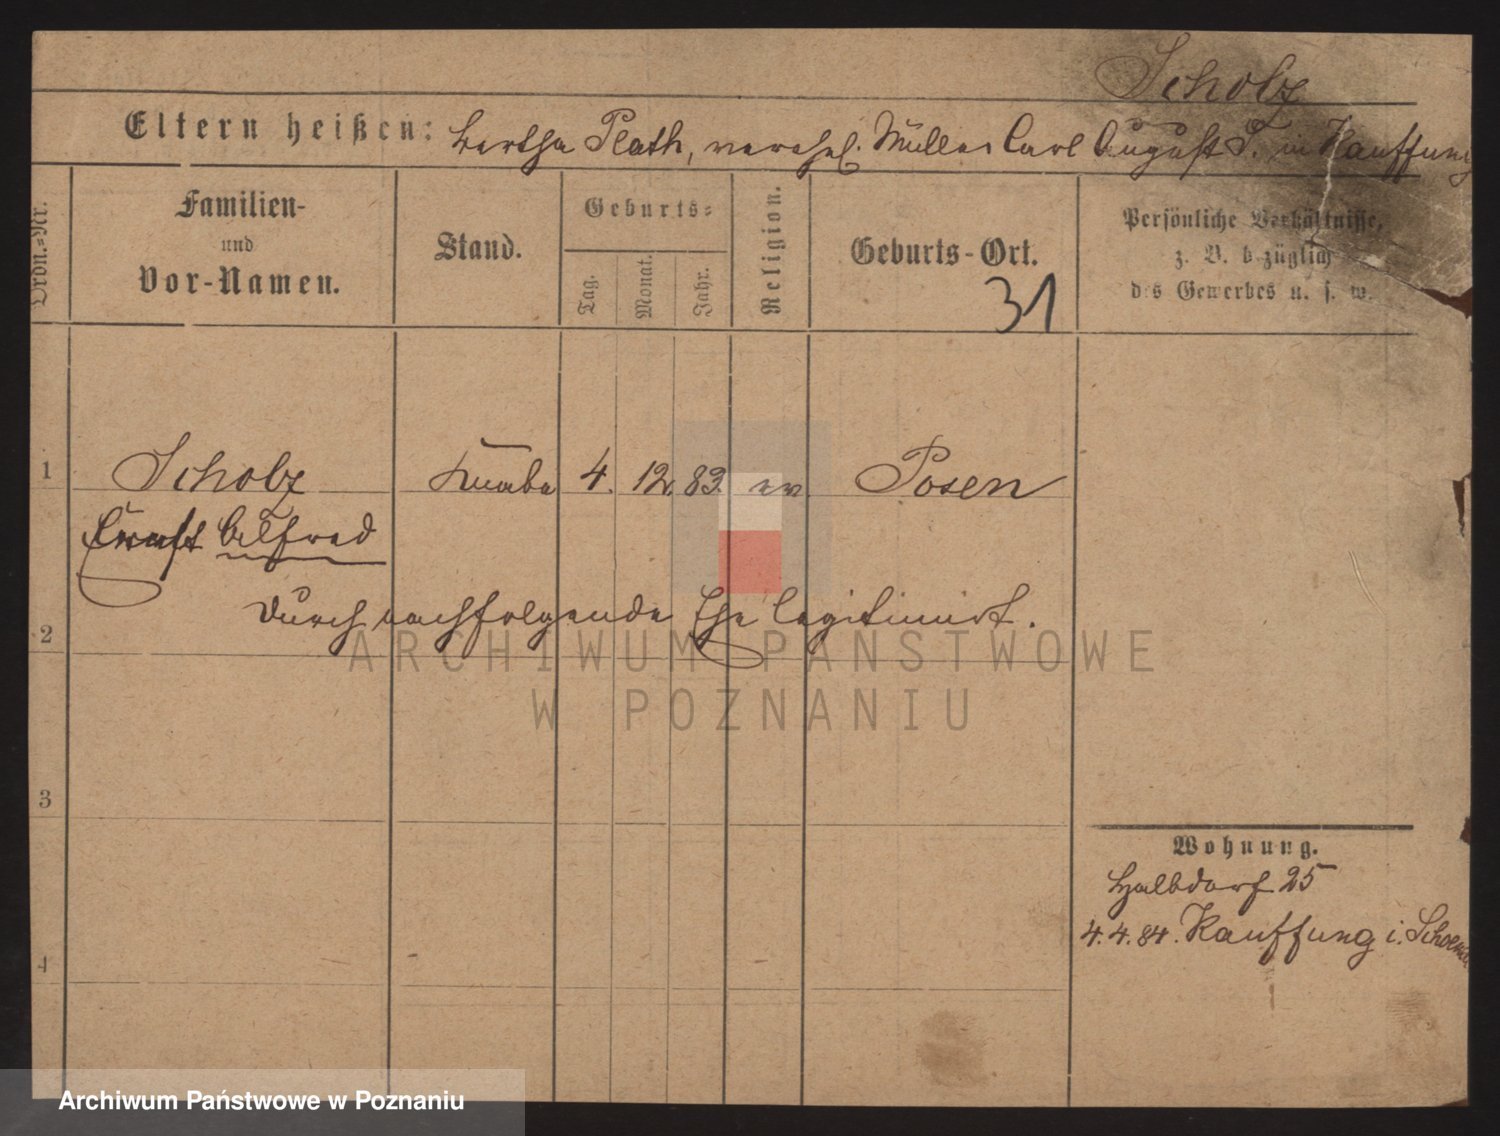 Scholz
Eltern heißen: Bertha Plath, verehel. Müller Carl August S. in Kauffung
Ordn.=Nr.
Familien-
und
Vor-Namen.
Stand.
Geburts=
Tag.
Monat.
Jahr.
Religion.
Geburts-Ort.
31
Persönliche Verhältnisse,
z. B. bezüglich
des Gewerbes u. s. w.
1 Scholz Knabe 4. 12. 83. ev Posen
Ernst Alfred
Durch nachfolgende Ehe legitimirt.
2
3
4
Wohnung.
Halbdorf 25
4.4.84. Kauffung i.
ARCHIWUM PAŃSTWOWE
W POZNANIU
Archiwum Państwowe w Poznaniu